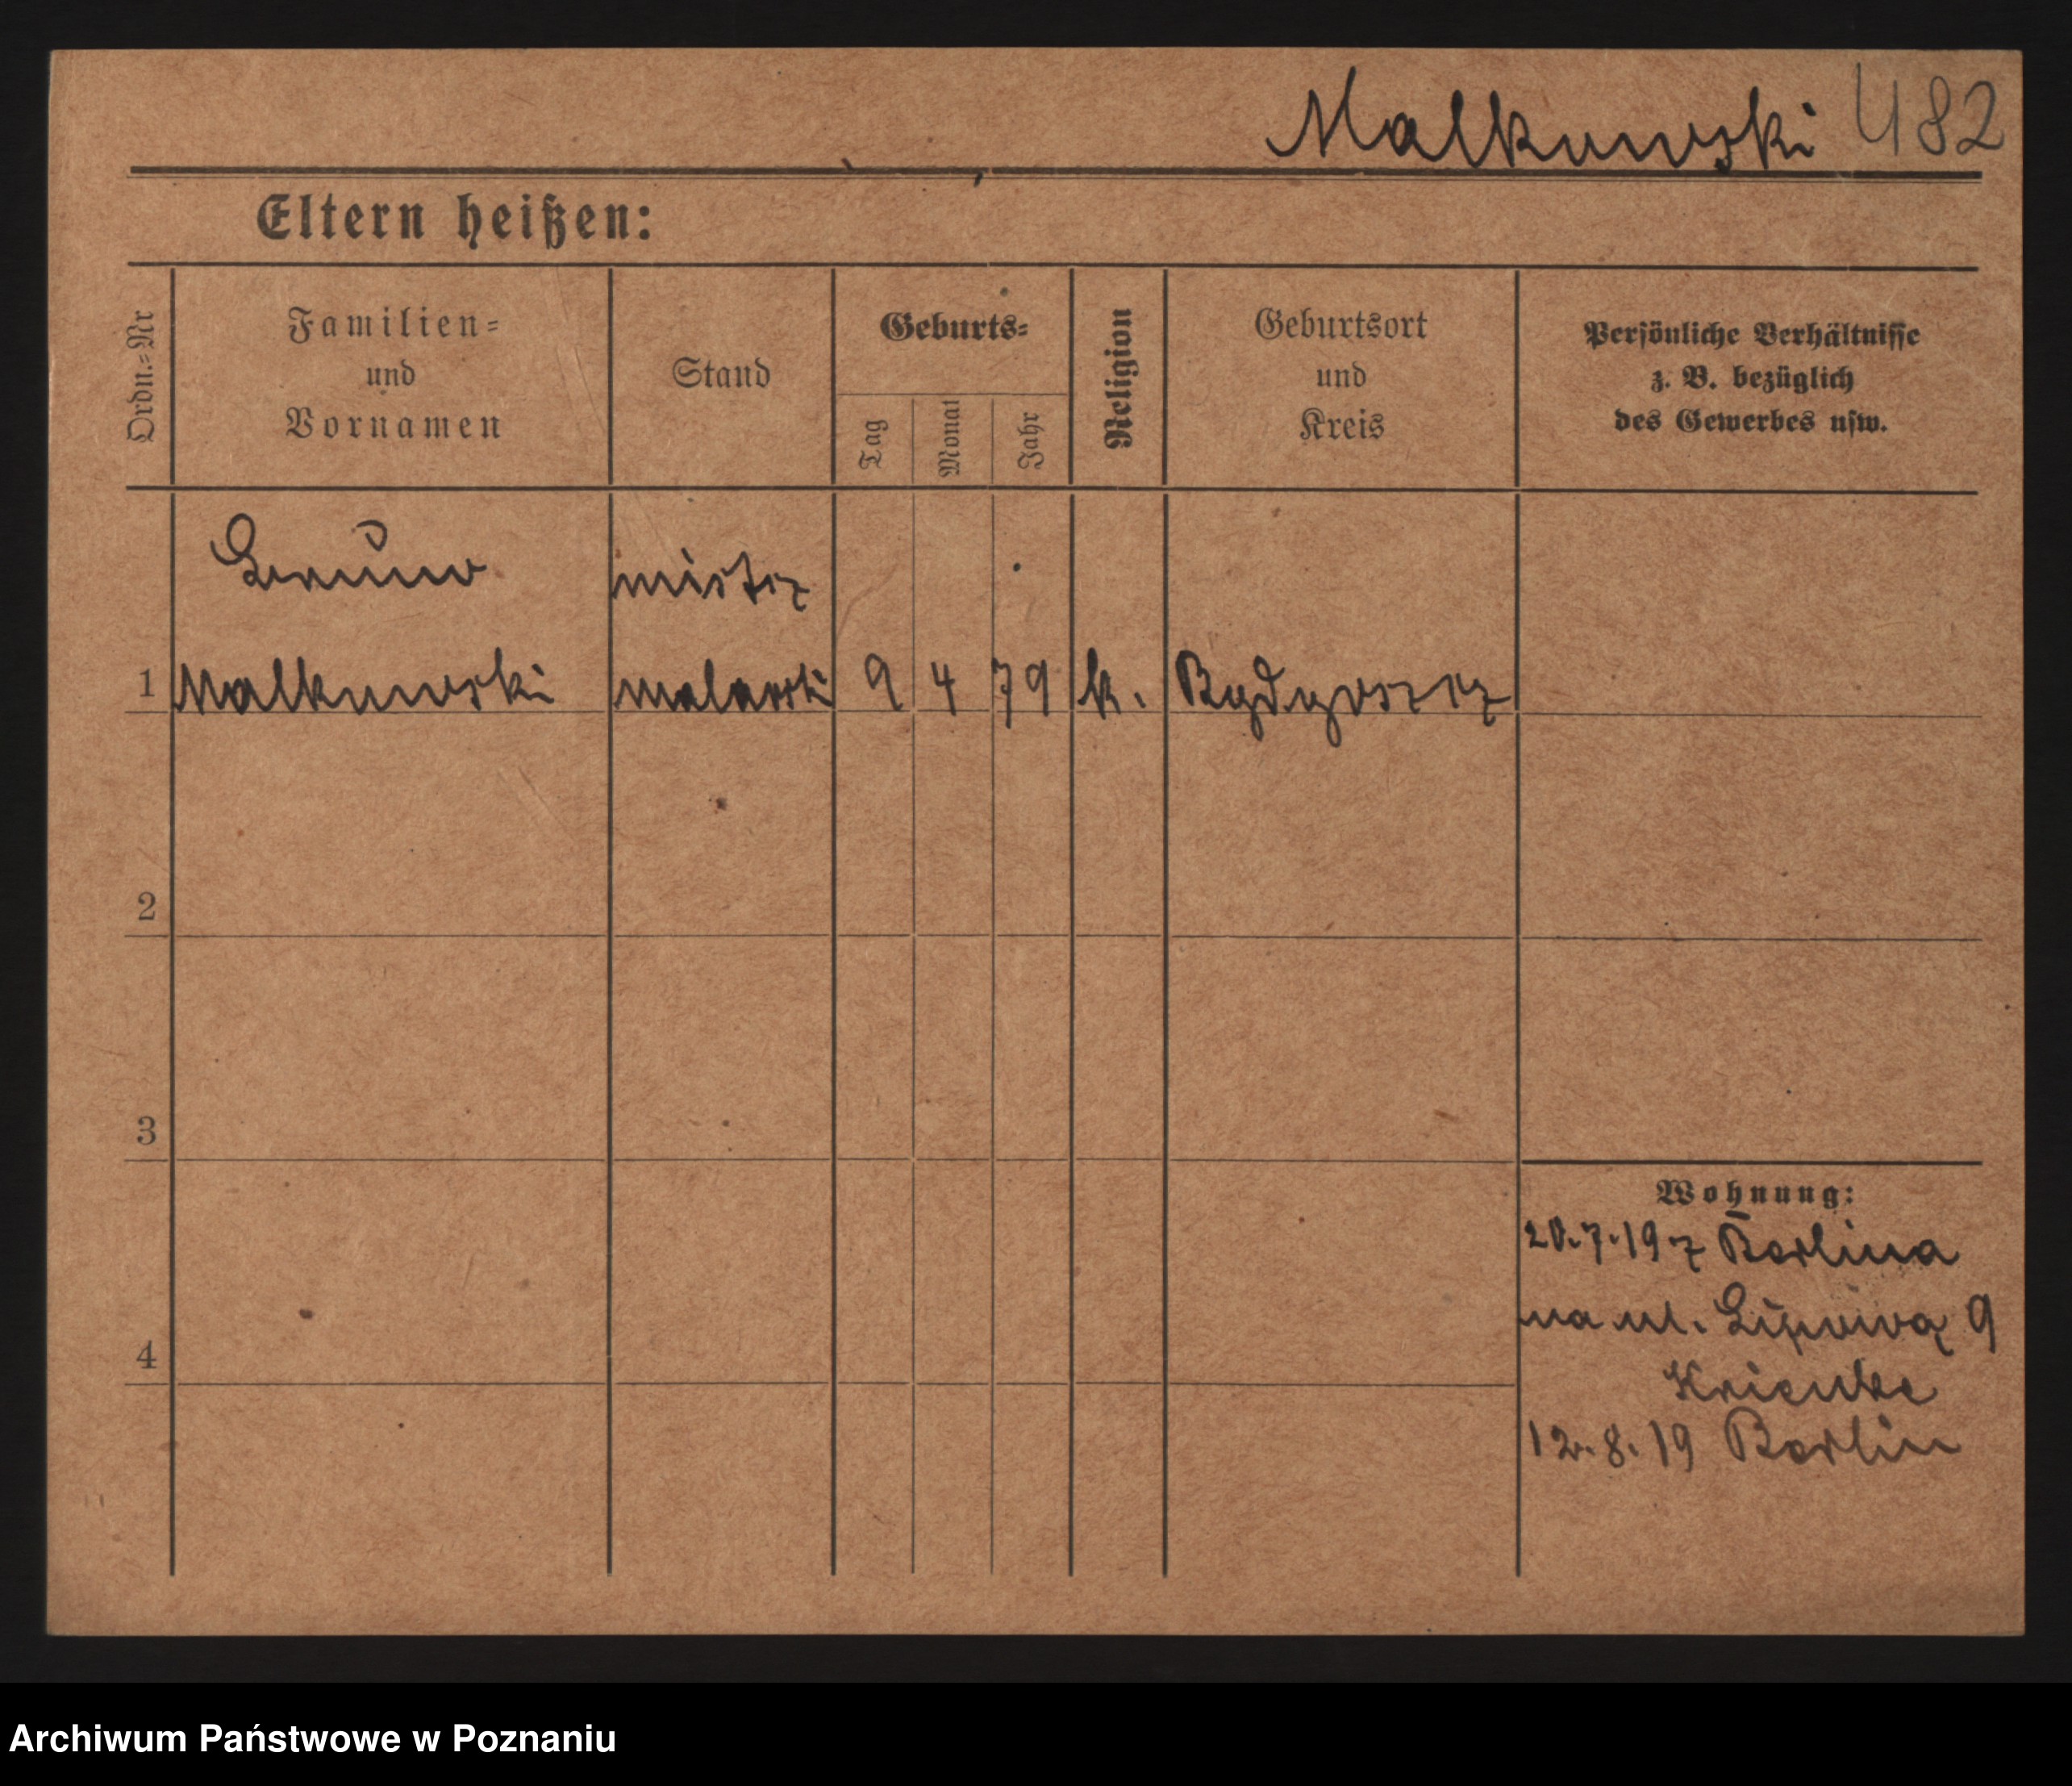 Malkowski 482
Eltern heißen:
Ordn.=Nr
Familien=
und
Vornamen
Stand
Geburts=
Tag
Monat
Jahr
Religion
Geburtsort
und
Kreis
Persönliche Verhältnisse
z. B. bezüglich
des Gewerbes usw.
Bruno mistrz
1 Malkowski malarski 9 4 79 k. Bydgoszcz
2
3
4
Wohnung:
20.7.19 z Berlina
na ul. Lipową 9
Krienke
12.8.19 Berlin
Archiwum Państwowe w Poznaniu